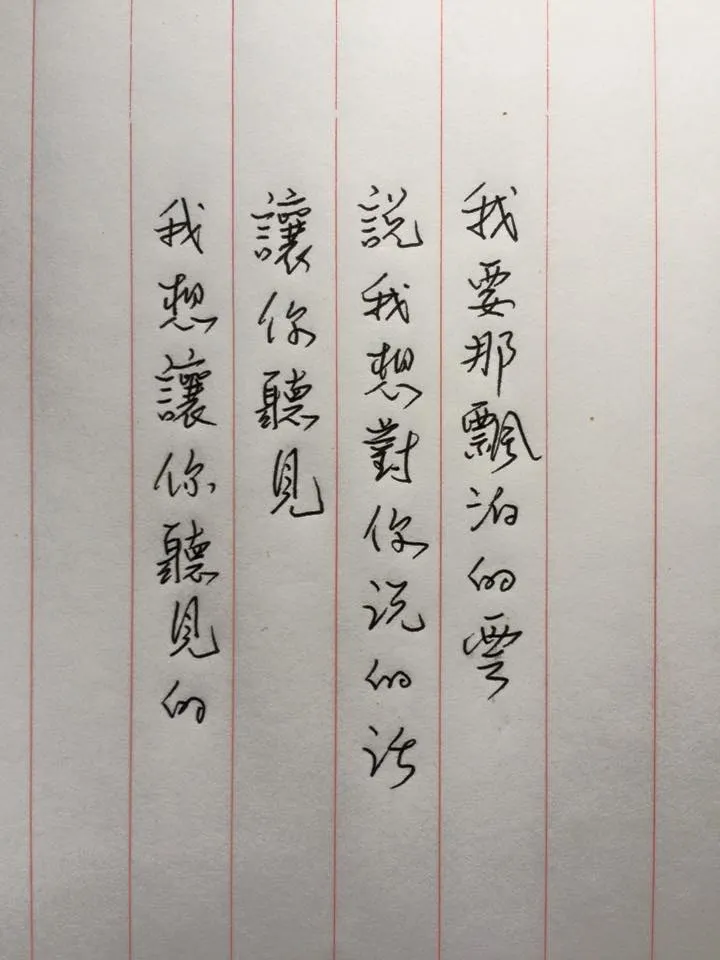 我要那飄泊的雲
説我想對你说的话
讓你聽見
我想讓你聽見的